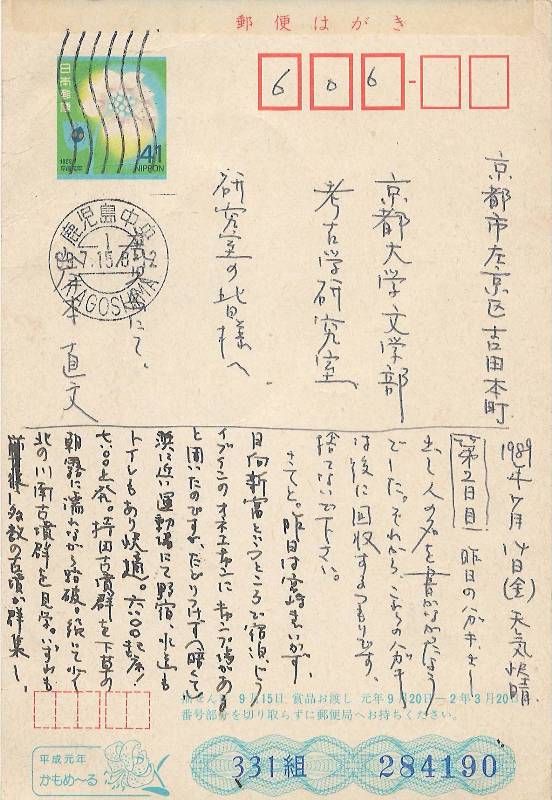 郵便はがき
日本郵便
1989
平成元年
41
NIPPON
606-
京都市左京区吉田本町
京都大学文学部
考古学研究室
研究室の皆様へ
鹿児島にて、
本直文
鹿児島中央
KAGOSHIMA
1989年7月14日(金)天気快晴
第2日目 昨日のハガキ、さし
出し人の名を書かなかったよう
でした。それから、これらのハガキ
は後に回収するつもりです。
捨てないで下さい。
さてと。昨日は宮崎まいかず、
日向新富というところで宿泊。ドラ
イブインのオネエちゃんにキャンプ場がある
と聞いたのですが、たどりつけず、暗くて
浜に近い運動場にて野宿、水道も
トイレもあり快適。六:00起床!
七:00出発。持田古墳群を下草の
朝露に濡れながら踏破。続いて少し
北の川南古墳群を見学。いずれも
多数の古墳が群集し、
抽せん 9月15日 賞品お渡し 元年9月20日-2年3月20日
番号部分を切り取らずに郵便局へお持ちください。
平成元年
かもめ〜る
331組 284190